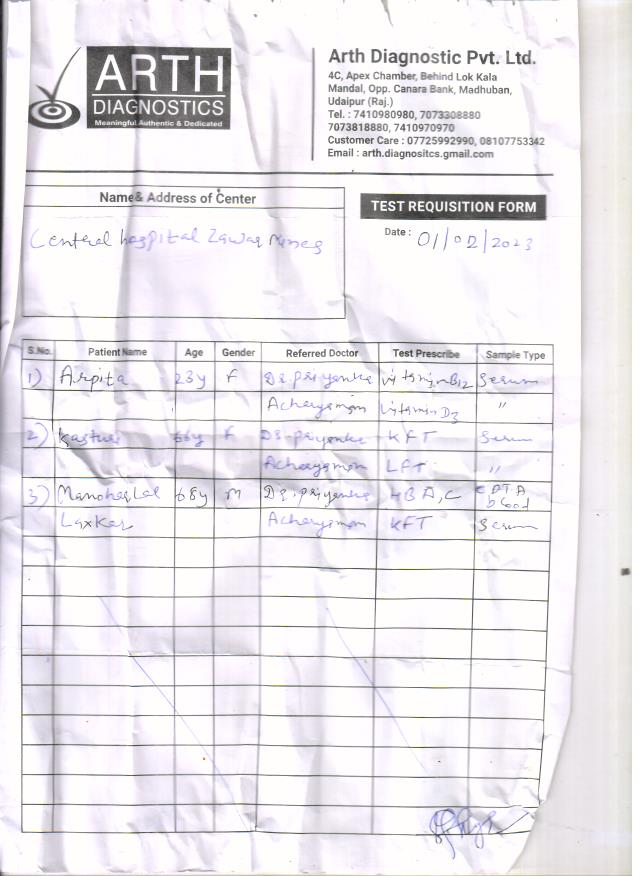 ARTH
DIAGNOSTICS
Meaningful Authentic & Dedicated
Arth Diagnostic Pvt. Ltd.
4C, Apex Chamber, Behind Lok Kala
Mandal, Opp. Canara Bank, Madhuban,
Udaipur (Raj.)
Tel. : 7410980980, 7073308880
7073818880, 7410970970
Customer Care : 07725992990, 08107753342
Email : arth.diagnositcs.gmail.com
Name & Address of Center
Central hospital Zawar Mines
TEST REQUISITION FORM
Date : 01/02/2023
S.No. Patient Name Age Gender Referred Doctor Test Prescribe Sample Type
1) Arpita 23y F Dr. priyanka vitamin B12 Serum
vitamin D3 "
2) 66y F Dr. priyanka KFT Serum
LFT "
3) Manoharlal 68y M Dr. priyanka HBA1C EDTA blood
Laxkar KFT Serum